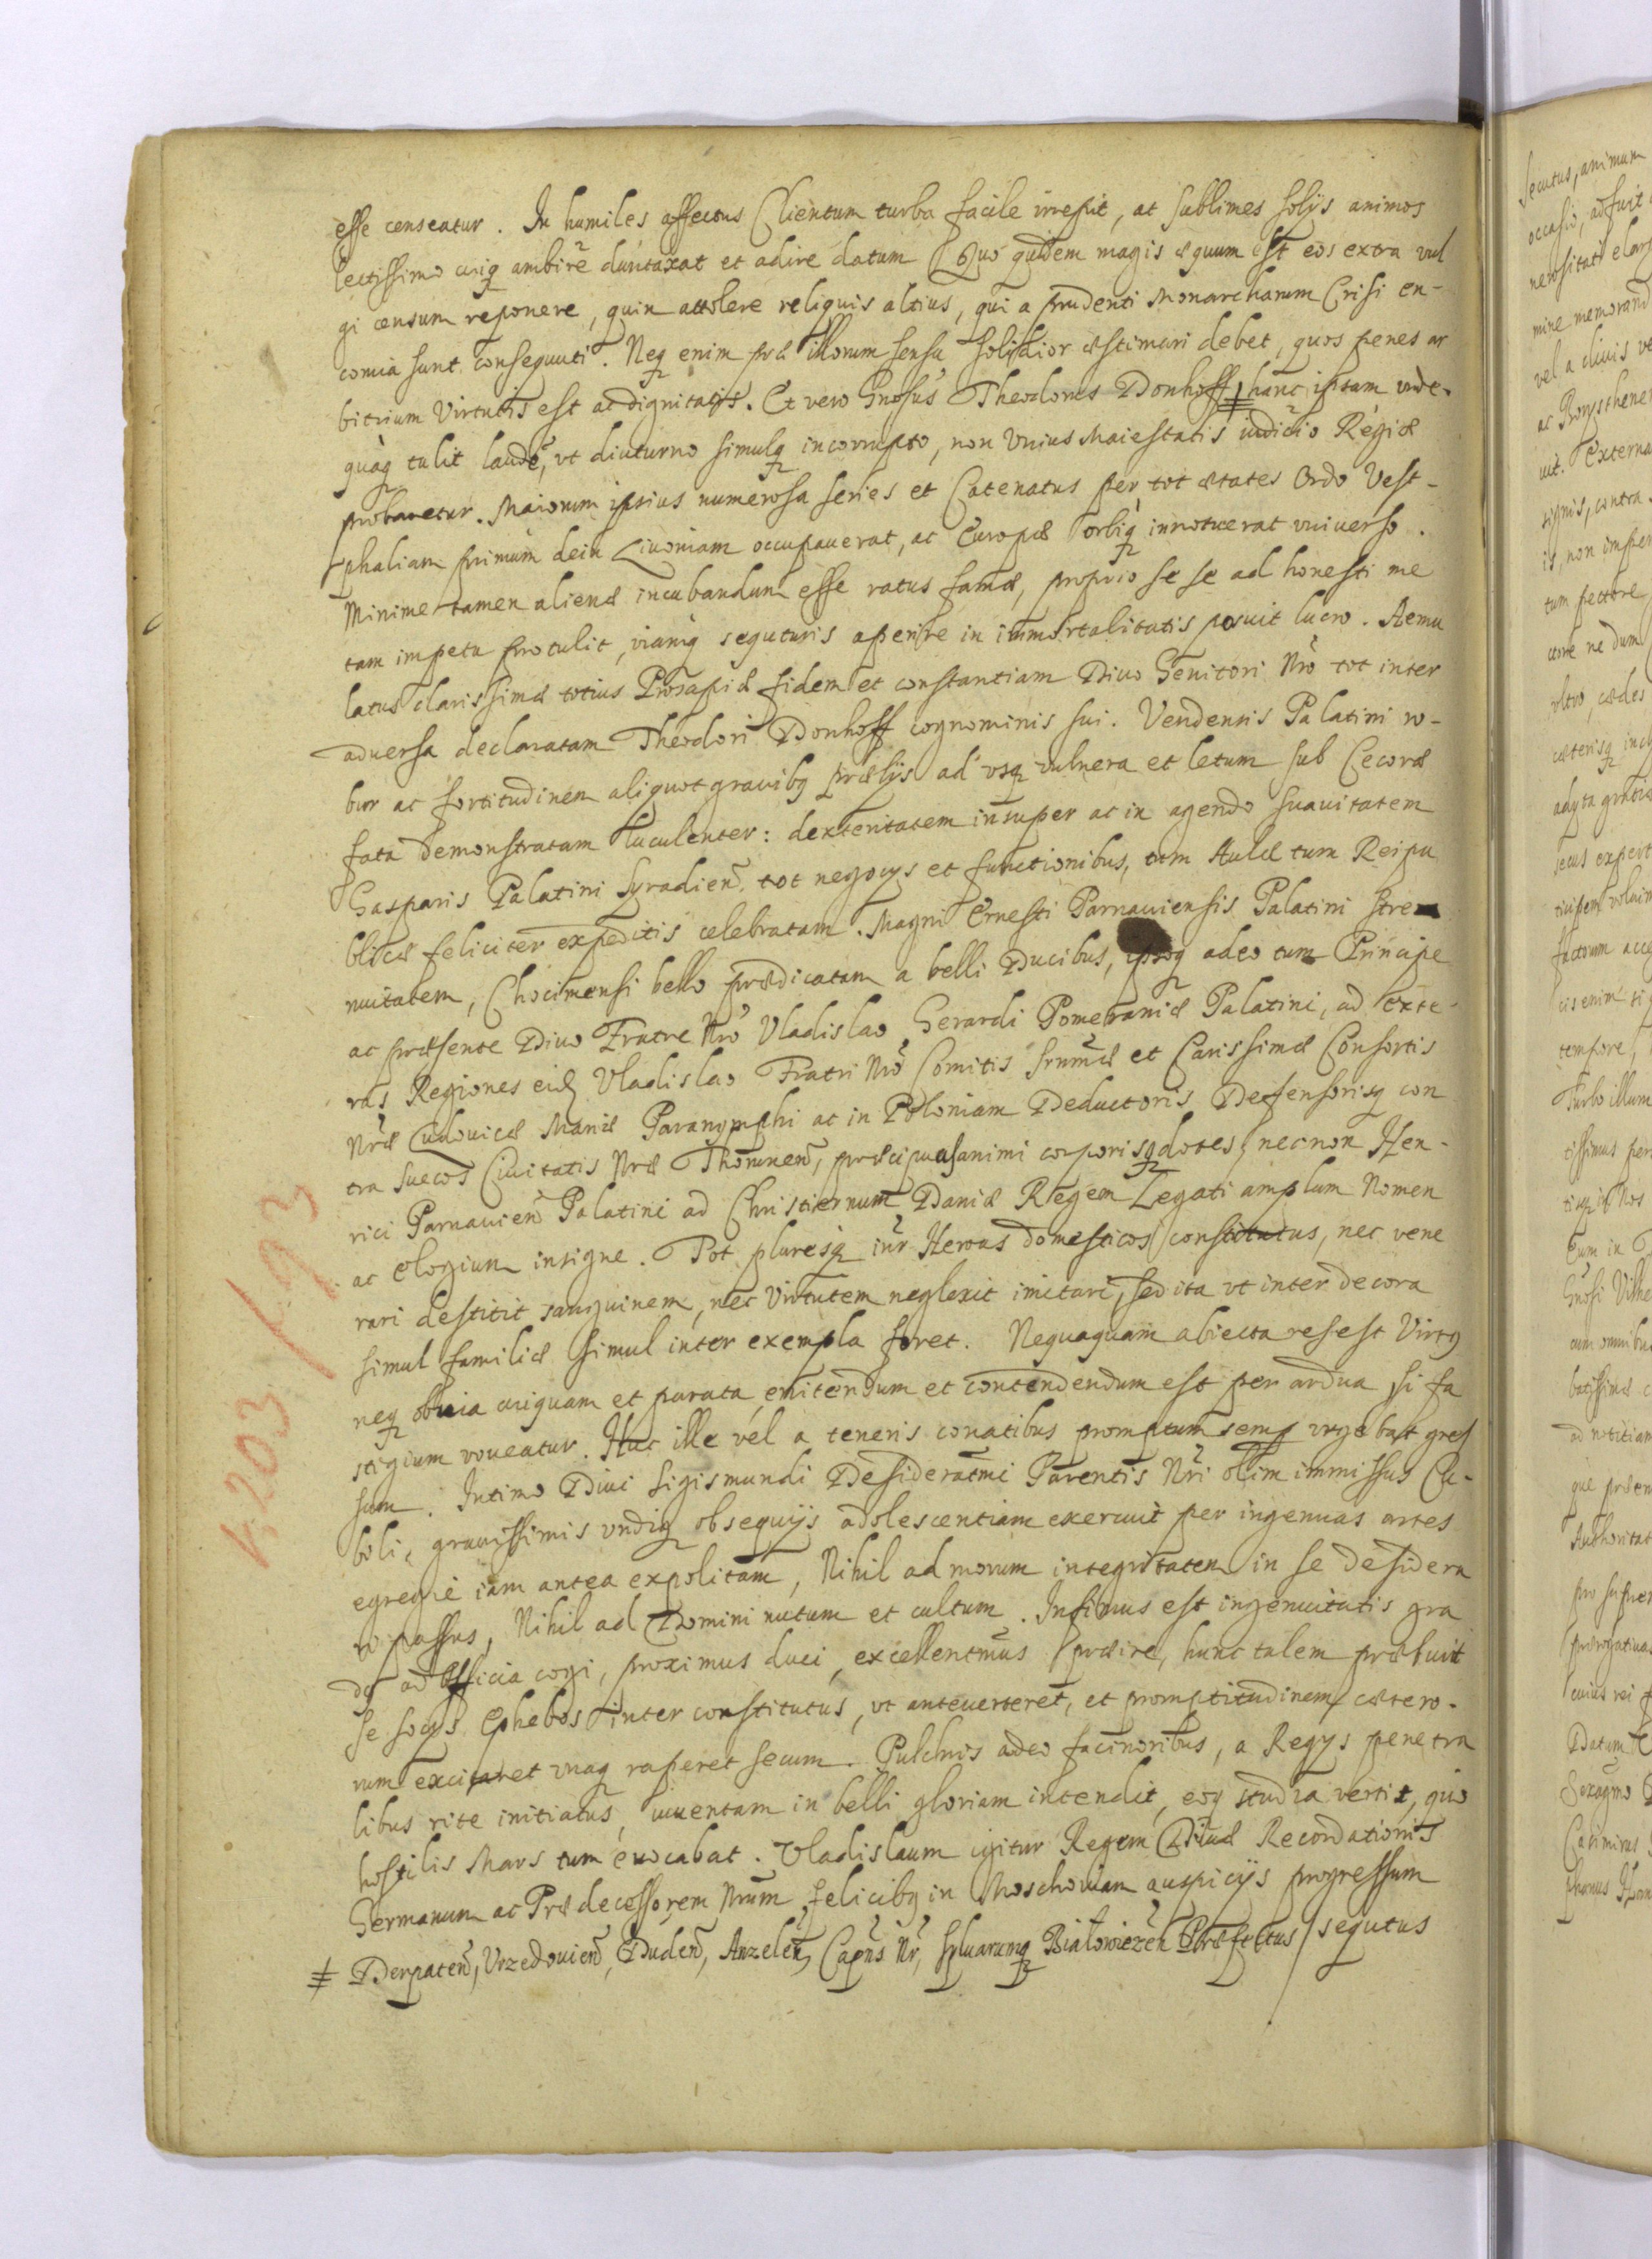 esse censeatur. In humiles affectus Clientum turba facile irrepit, at sublimes solijs animos
lectissimo cuiq ambire duntaxat et adire datum Quo quidem magis æquum est eos extra vul
gi censum reponere, quin attolere reliquis altius, qui a prudenti Monarcharum Crisi en-
comia sunt consequuti. Neq enim præ illorum sensu solidior æstimari debet, quos penes ar
bitrium Virtutis est ac dignitatis. Et vero Gnosus Theodorus Donhoff ⧧ hanc istam unde-
quaq tulit laude, vt diuturno simulq incorrupto, non Vnius Maiestatis iudicio Regiæ
probaretur. Maiorum ipsius numerosa series et Catenatus per tot ætates Ordo Vest-
phaliam primum dein Liuoniam occupauerat, ac Europæ orbiq innotuerat vniuerso.
Minime tamen alienæ incubandum esse ratus famæ, proprio se se ad honesti me
tam impetu protulit, viamq seguturis aperire in immortalitatis posuit lucro. Aemu
latus clarissimæ totius Prosapiæ fidem et constantiam Diuo Genitori Nro tot inter
aduersa declaratam Theodori Donhoff cognominis sui. Vendensis Palatini ro-
bur ac fortitudinem aliquot grauibq prælijs ad vsq vulnera et letum sub Cecoræ
fata demonstratam luculenter: dexteritatem insuper ac in agendo suauitatem
Gasparis Palatini Syradien. tot negocys et functionibus, tum Aulæ tum Reipu
blicæ feliciter expeditis celebratam. Magni Ernesti Parnauiensis Palatini stre
nuitatem, Chocimensi bello prædicatam a belli Ducibus, ipsoq adeo tum Principe
ac præsente Diuo Fratre Nro Vladislao, Gerardi Pomeraniæ Palatini, ad exte-
ras Regiones eid Vladislao Fratri Nro Comitis Srnmæ et Carissimæ Consortis
Nræ Ludouicæ Mariæ Paranymphi ac in Poloniam Deductoris Defensorisq con
tra Suecos Ciuitatis Nræ Thorunen, præcipuas animi corporisq dotes, necnon Hen-
rici Parnauien Palatini ad Christiernum Daniæ Regem Legati amplum Nomen
ac elogium insigne. Tot pluresq intr Heroas domesticos constitutus, nec vene
rari destitit sanguinem, nec Virtutem neglexit imitari, sed ita vt inter decora
simul familiæ simul inter exempla foret. Nequaquam abiecta res est Virtq
neq obuia cuiquam et parata, enitendum et contendendum est per ardua, si fa
stigium voueatur. Huc ille vel a teneris conatibus promptum semp vrgebat gres
sum. Intimo Diui Sigismundi Desideratmi Parentis Nri olim immissus Cu-
bili, grauissimis vndiq obsequijs adolescentiam exercuit per ingenuas artes
egregie iam antea expolitam, Nihil ad morum integritatem in se desidera
ri passus, Nihil ad Domini nutum et cultum. Infimus est ingenuitatis gra
dq ad officia cogi, proximus duci, excellentmus præire, hunc talem præbuit
se socys Ephebos inter constitutus, vt anteuerteret, et promptitudinem cætero-
rum excitaret vnaq raperet secum. Pulchris adeo facinoribus, a Regys penetra
libus rite initiatus, iuuentam in belli gloriam intendit, eoq studia vertit, quo
hostilis Mars tum euocabat. Vladislaum igitur Regem Diuæ Recordationis
Germanum ac Prædecessorem Nrum, felicibq in Moschouiam auspicijs progressum
⧧ Derpaten, Vrzedouien, Duden, Anzelen, Capns Nr, Syluarumq Białowiezen Præfectus / segutus
1,203/93